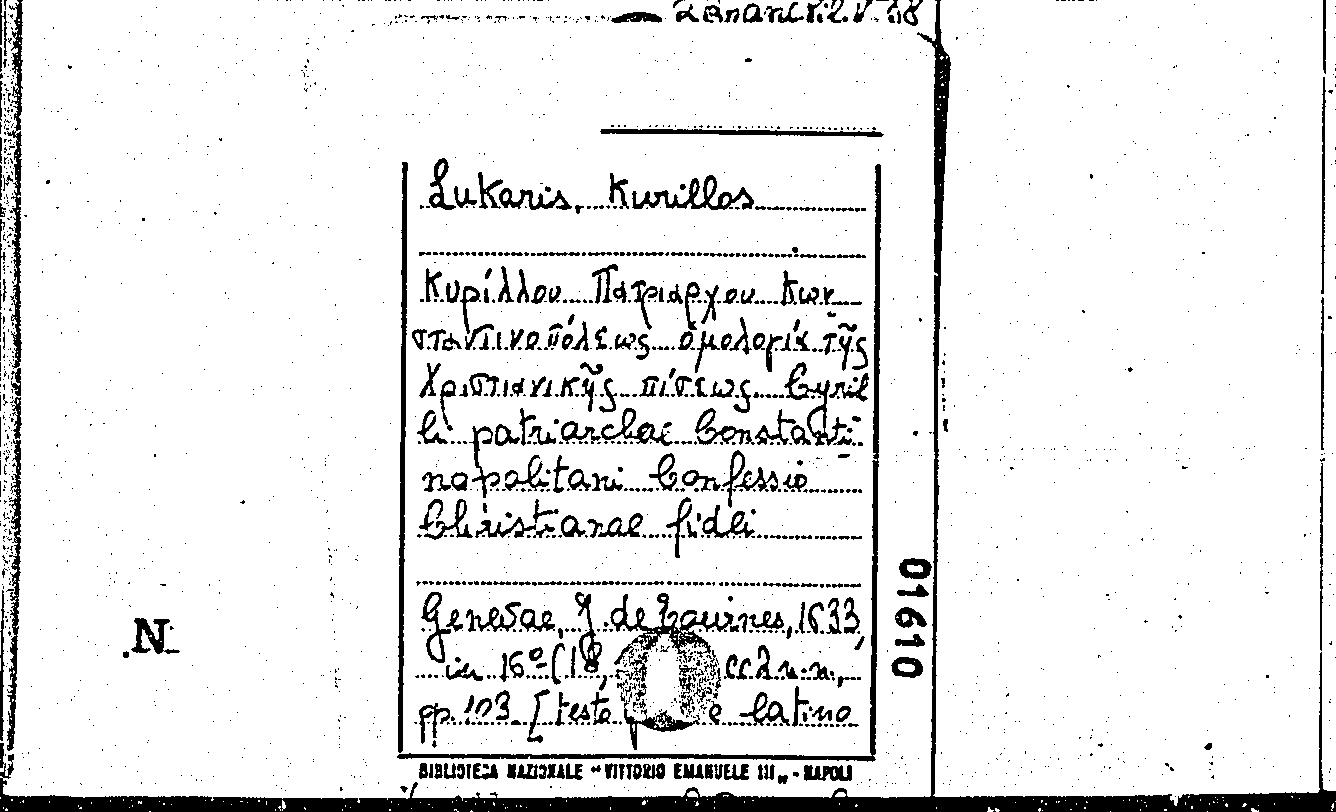 Lukaris, Kurillos
Κυρίλλου Πατριάρχου Κων_
σταντινοπόλεως ὁμολογία τῆς
Χριστιανικῆς πίστεως Cyril
li patriarchae Constanti_
nopolitani Confessio
Christianae fidei
01610
Genevae, J. de Tournes, 1633,
N
in 16º (18, cc 2 n.n.,
pp. 103. [testo e latino
BIBLIOTECA NAZIONALE "VITTORIO EMANUELE III„ - NAPOLI